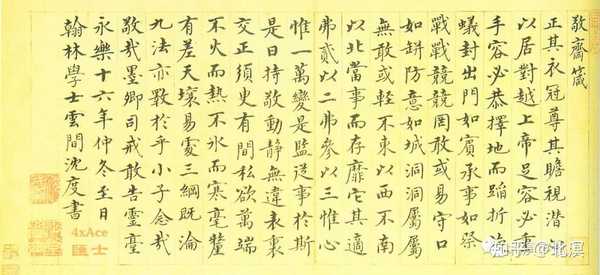 敬齋箴
正其衣冠尊其瞻視潛
以居對越上帝足容必重
手容必恭擇地而蹈折旋
蟻封出門如賓承事如祭
戰戰兢兢罔敢或易守口
如缾防意如城洞洞屬屬
無敢或輕不東以西不南
以北當事而存靡它其適
弗貳以二弗參以三惟心
惟一萬變是監從事於斯
是曰持敬動靜無違表裏
交正須臾有間私欲萬端
不火而熱不冰而寒毫釐
有差天壤易處三綱既淪
九法亦斁於乎小子念哉
敬哉墨卿司戒敢告靈臺
永樂十六年仲冬至日
翰林學士雲間沈度書
4xAce
匯士
知乎 @北溟